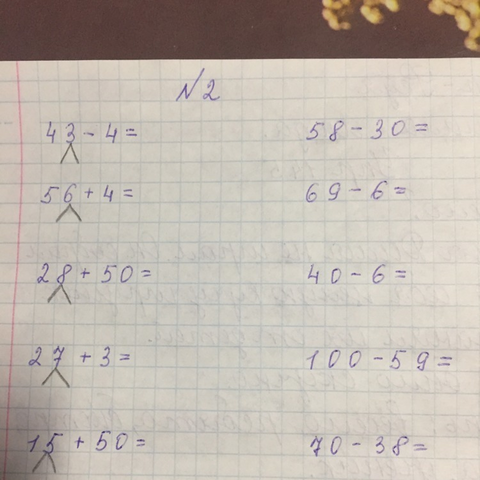 №2
43-4= 58-30=
56+4= 69-6=
28+50= 40-6=
27+3= 100-59=
15+50= 70-38=